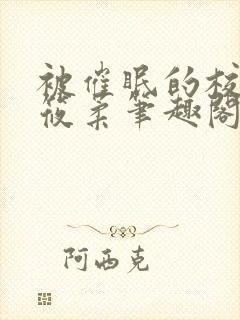 被催眠的校
筱柔笔趣阁
阿西克